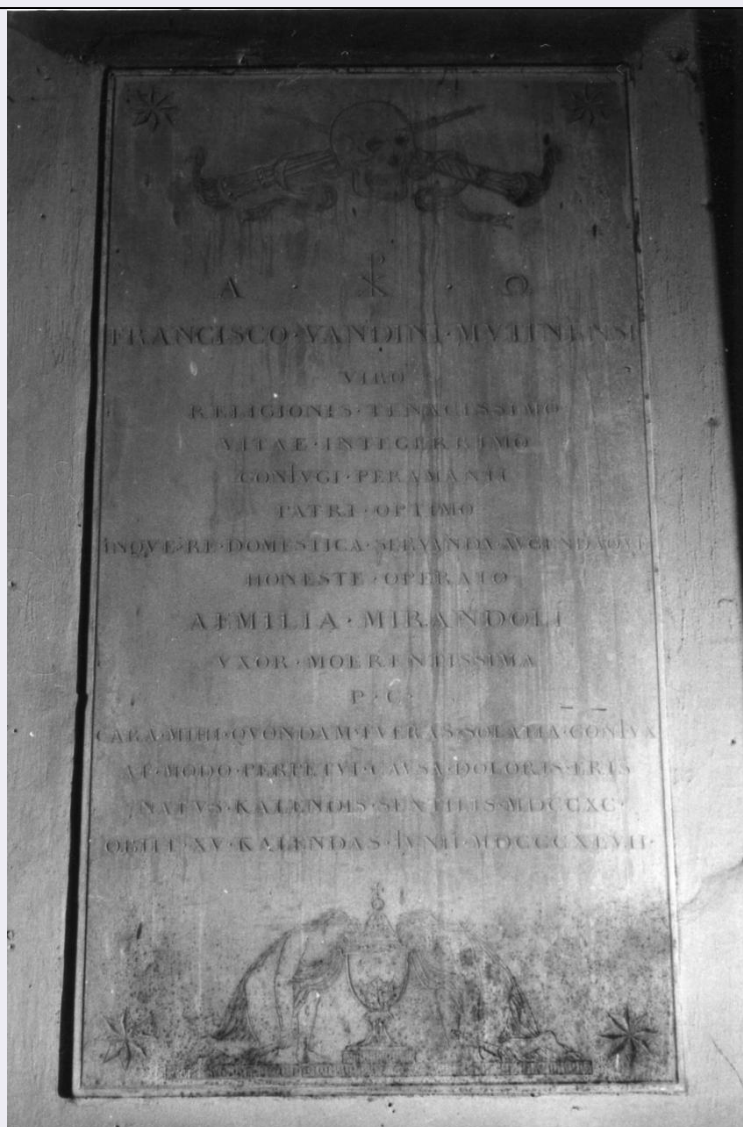 Α ☧ Ω
FRANCISCO·VANDINI·MVTINENSI
VIRO
RELIGIONIS·TENACISSIMO
VITAE·INTEGERRIMO
CONIVGI·PERAMANTI
PATRI·OPTIMO
INQVE·RE·DOMESTICA·SERVANDA·AVGENDAQVE
HONESTE·OPERATO
AEMILIA·MIRANDOLI
VXOR·MOERENTISSIMA
P·C·
CARA·MIHI·QVONDAM·FVERAS·SOLATIA·CONIVX
AT·MODO·PERPETVI·CAVSA·DOLORIS·ERIS
NATVS·KALENDIS·SEXTILIS·MDCCXC·
OBIIT·XV·KALENDAS·IVNII·MDCCCXLVII·